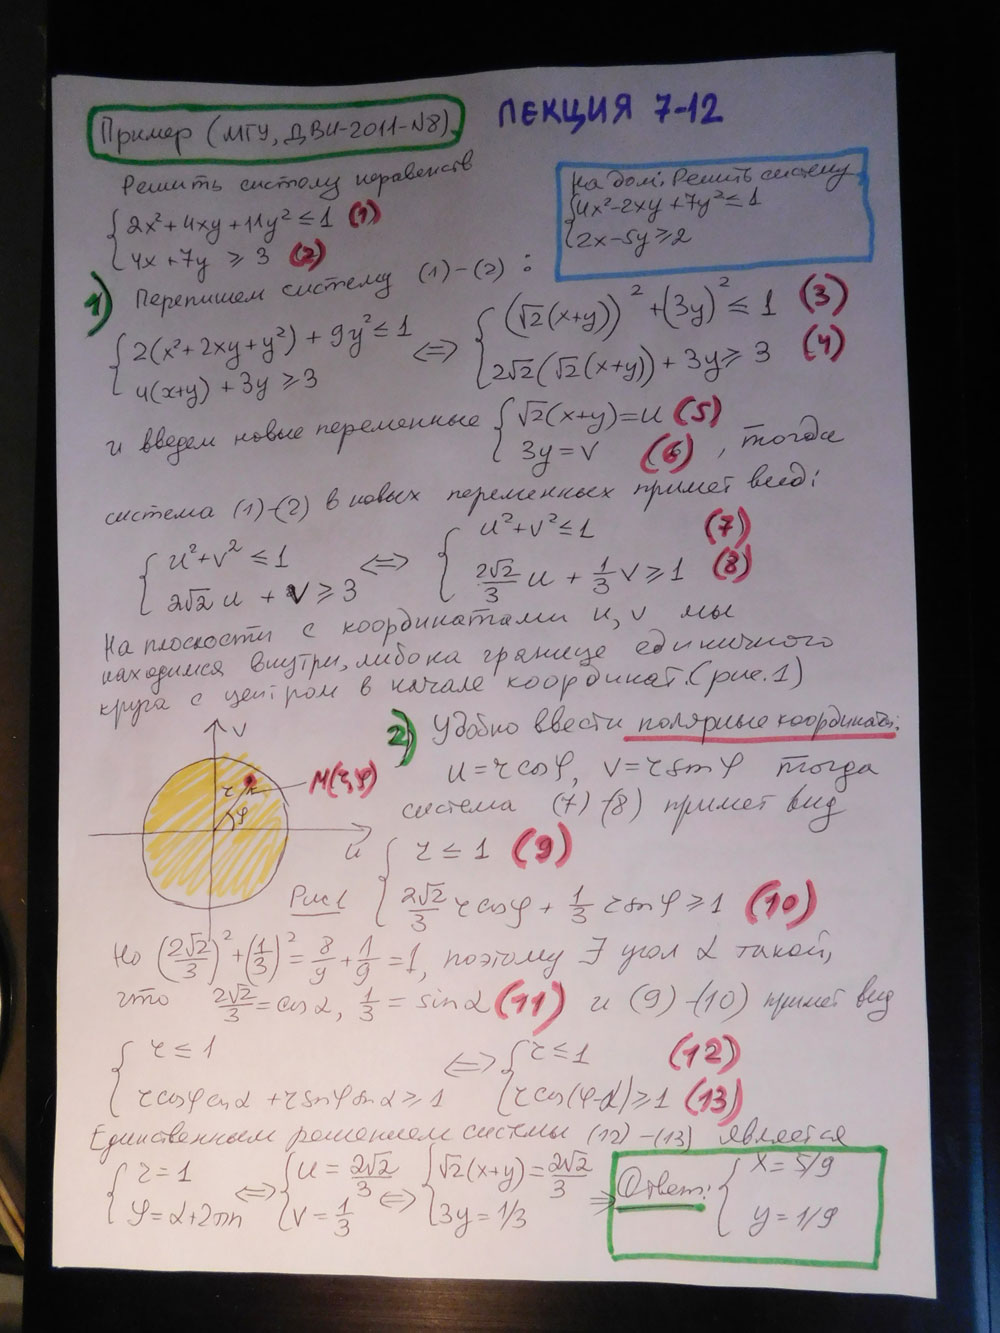 Пример (МГУ, ДВИ-2011-№8)
ЛЕКЦИЯ 7-12
Решить систему неравенств
{ 2x²+4xy+11y² ≤ 1 (1)
{ 4x+7y ≥ 3 (2)
На дом: Решить систему
{ 4x²-2xy+7y² ≤ 1
{ 2x-5y ≥ 2
1) Перепишем систему (1)-(2):
{ 2(x²+2xy+y²)+9y² ≤ 1 ⇔ { (√2(x+y))²+(3y)² ≤ 1 (3)
{ 4(x+y)+3y ≥ 3 { 2√2(√2(x+y))+3y ≥ 3 (4)
и введем новые переменные { √2(x+y)=u (5)
{ 3y=v (6), тогда
система (1)-(2) в новых переменных примет вид:
{ u²+v² ≤ 1 ⇔ { u²+v² ≤ 1 (7)
{ 2√2 u + v ≥ 3 { 2√2/3 u + 1/3 v ≥ 1 (8)
На плоскости с координатами u, v мы
находимся внутри, либо на границе единичного
круга с центром в начале координат. (рис.1)
2) Удобно ввести полярные координаты:
u=r cosφ, v=r sinφ тогда
система (7)-(8) примет вид
v
r
φ
M(r,φ)
u
Рис 1
{ r ≤ 1 (9)
{ 2√2/3 r cosφ + 1/3 r sinφ ≥ 1 (10)
Но (2√2/3)²+(1/3)²=8/9+1/9=1, поэтому ∃ угол α такой,
что 2√2/3=cosα, 1/3=sinα (11) и (9)-(10) примет вид
{ r ≤ 1 ⇔ { r ≤ 1 (12)
{ r cosφ cosα + r sinφ sinα ≥ 1 { r cos(φ-α) ≥ 1 (13)
Единственным решением системы (12)-(13) является
{ r=1 ⇔ { u=2√2/3 ⇔ { √2(x+y)=2√2/3
{ φ=α+2πn { v=1/3 { 3y=1/3 ⇒
Ответ: { x=5/9
{ y=1/9